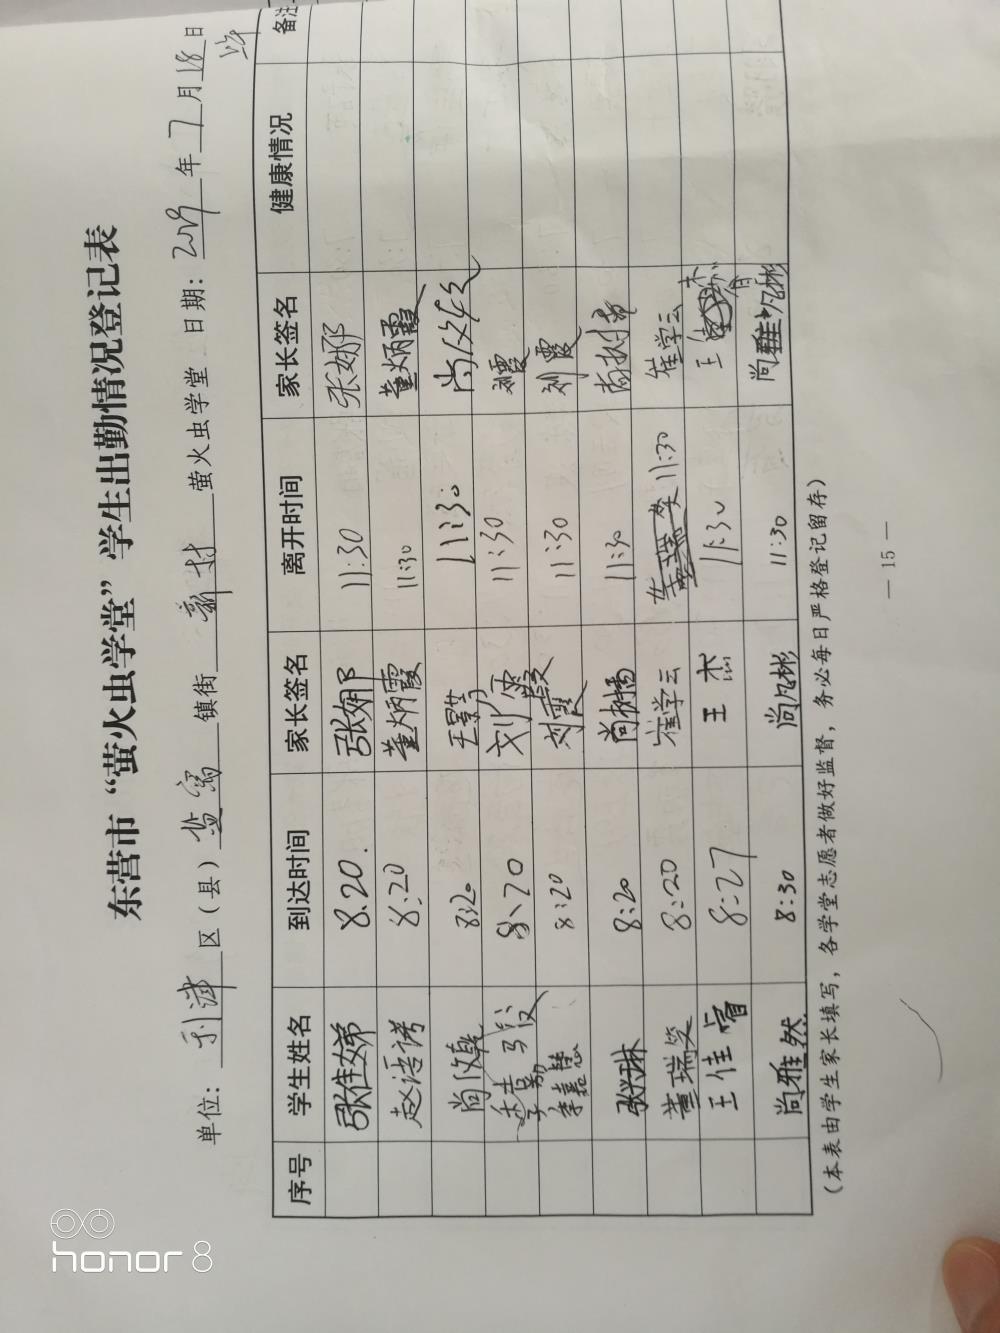 东营市“萤火虫学堂”学生出勤情况登记表
单位：利津区（县）盐窝镇街新村萤火虫学堂 日期：2019年7月18日
序号 学生姓名 到达时间 家长签名 离开时间 家长签名 健康情况 备注
张佳娣 8.20. 张娜 11:30 张娜
赵语诺 8:20 董炳霞 11:30 董炳霞
8:20 11:30
8:20 刘霞 11:30 刘霞
李嘉慧 8:20 刘霞 11:30 刘霞
张琳 8:20 尚树 11:30 尚树
董瑞笑 8:20 崔学云 11:30 崔学云
王佳睿 8:27 王杰 11:30 王
尚雅然 8:30 尚凡彬 11:30 尚凡彬
（本表由学生家长填写，各学堂志愿者做好监督，务必每日严格登记留存）
— 15 —
honor 8